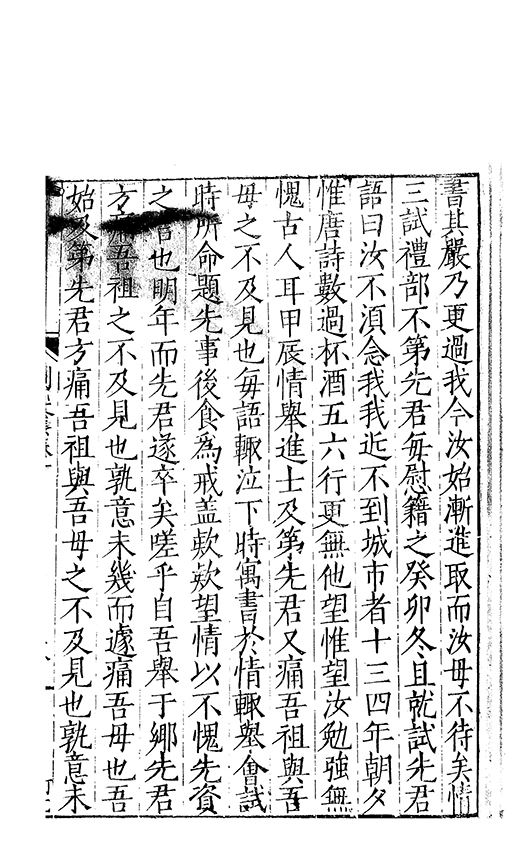 書其嚴乃更過我今汝始漸進取而汝母不待矣情
三試禮部不第先君每慰籍之癸卯冬且就試先君
語曰汝不湏念我我近不到城市者十三四年朝夕
惟唐詩數過杯酒五六行更無他望惟望汝勉強無
愧古人耳甲辰情舉進士及第先君又痛吾祖與吾
母之不及見也每語輙泣下時寓書於情輙舉會試
時所命題先事後食為戒盖歎歎望情以不愧先資
之言也明年而先君遂卒矣嗟乎自吾舉于鄉先君
方痛吾祖之不及見也孰意未幾而遽痛吾母也吾
始及第先君方痛吾祖與吾母之不及見也孰意未